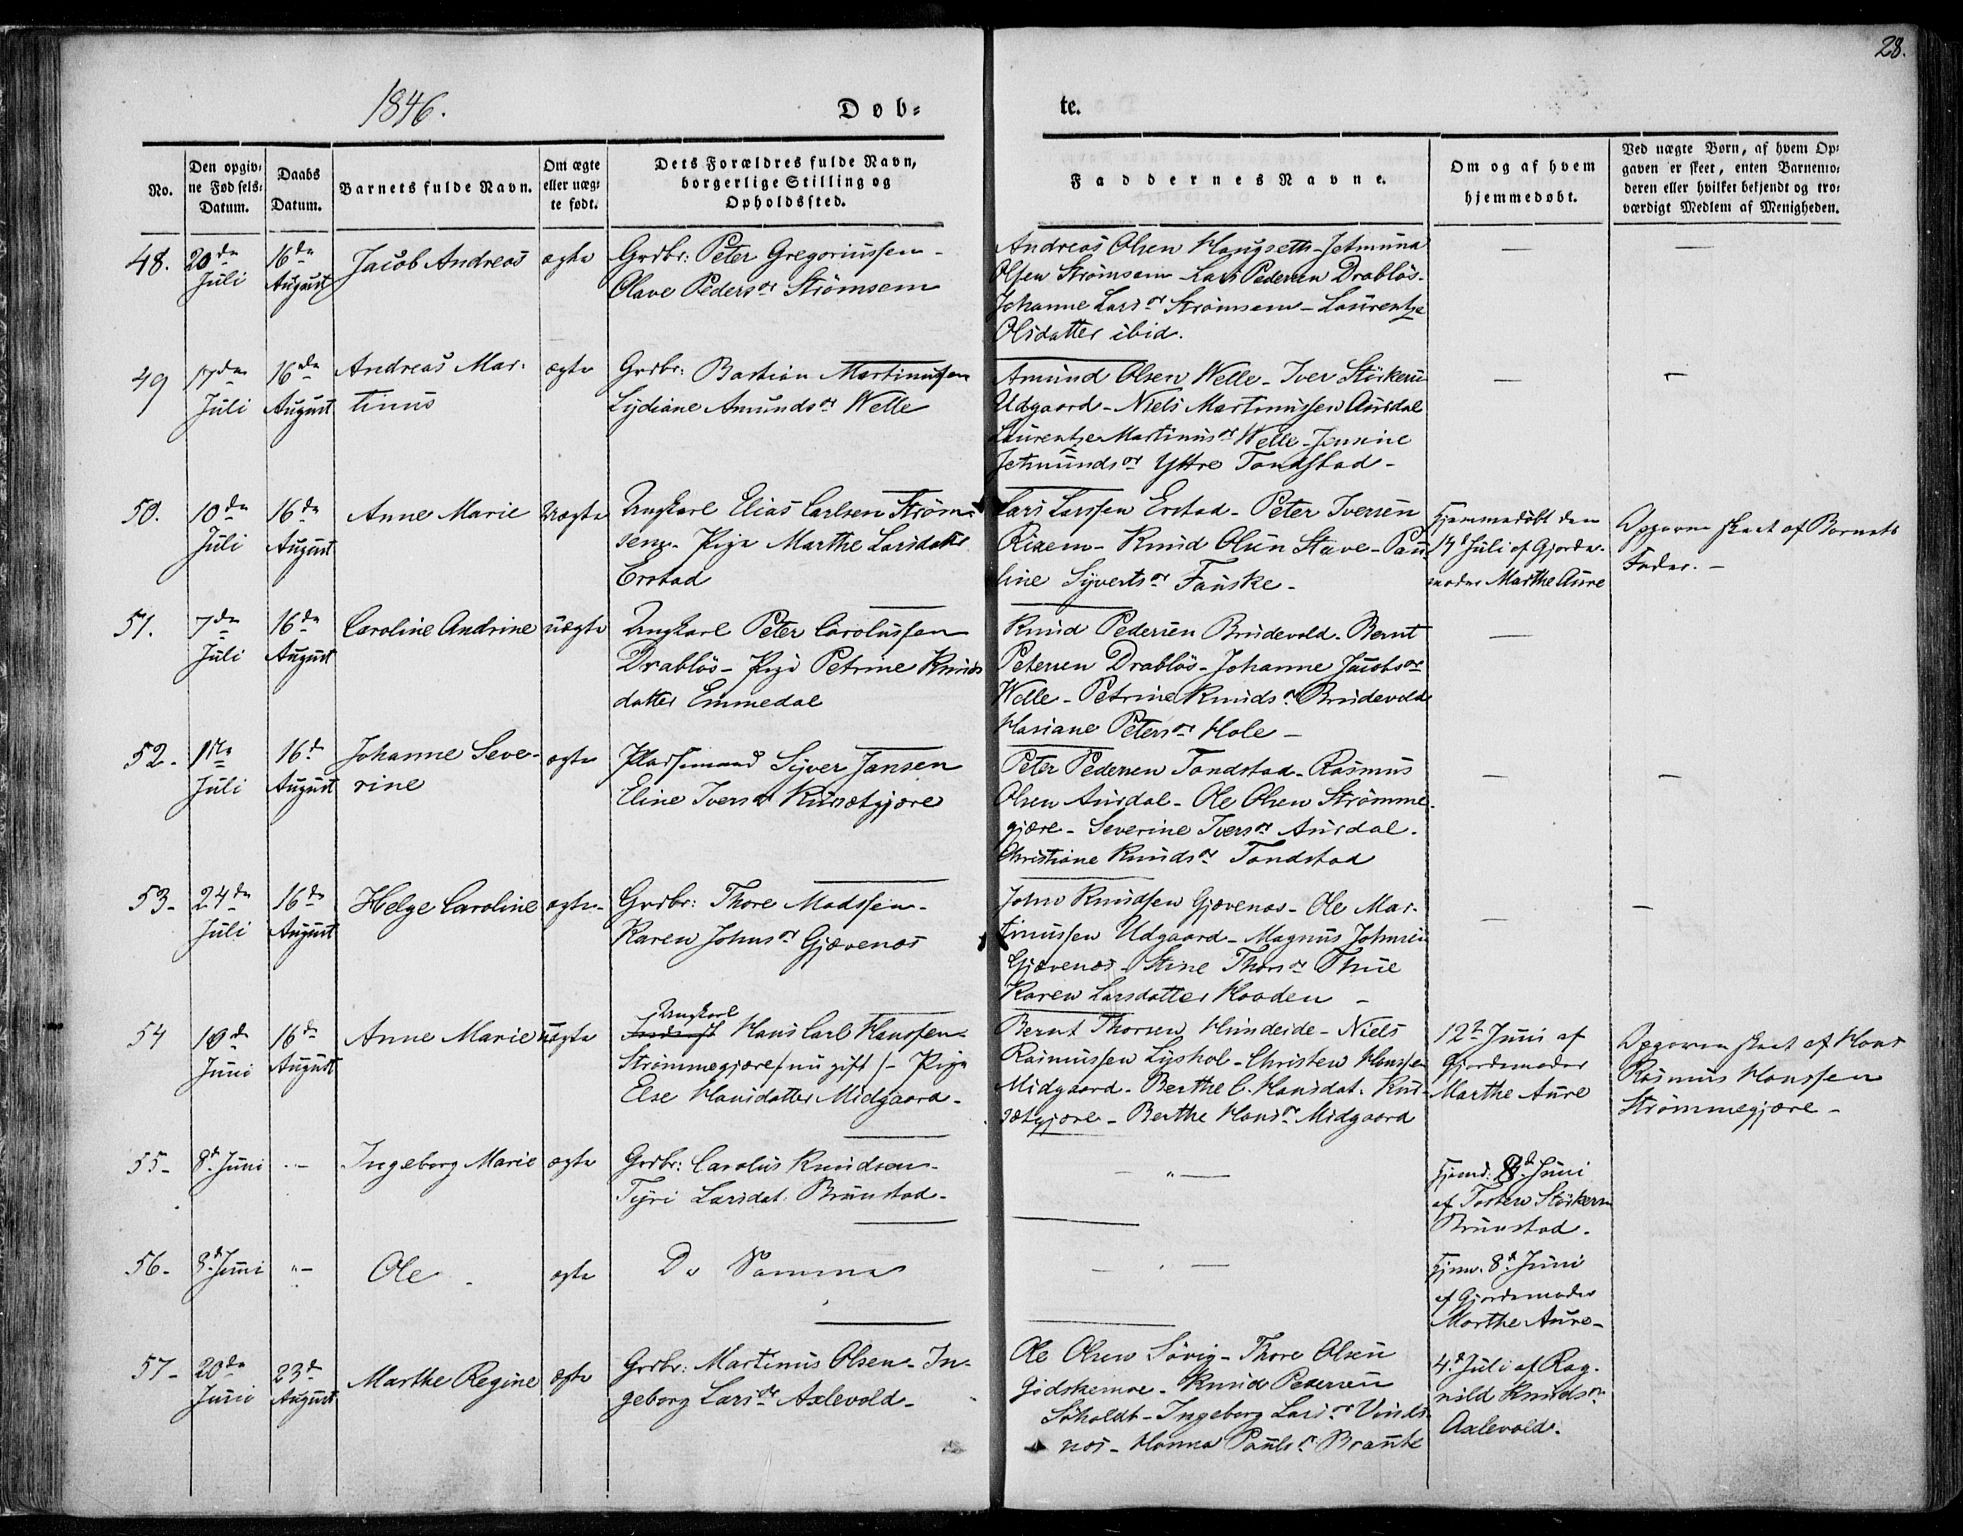 28.
1846.
Døb=
te.
No.
Den opgiv=
ne Fødsels=
Datum.
Daabs
Datum.
Barnets fulde Navn.
Om ægte
eller uæg=
te født.
Dets Forældres fulde Navn,
borgerlige Stilling og
Opholdssted.
Faddernes Navne.
Om og af hvem
hjemmedøbt.
Ved uægte Børn, af hvem Op=
gaven er skeet, enten Barnemo=
deren eller hvilket bekjendt og tro=
værdigt Medlem af Menigheden.
48.
20de
Juli
16de
August
Jacob Andreas
ægte
Grdbr: Peter Gregoriussen -
Olave Pedersdr Strømsem
Andreas Olsen Haugseth - Jetmund
Olsen Strømsem - Lars Pedersen Drabløs -
Johanne Larsdr Strømsem - Laurentze
Olsdatter ibid.
49
17de
Juli
16de
August
Andreas Mar-
tinus
ægte
Grdbr: Bastian Martinussen
Lydiane Amundsdr Welle
Amund Olsen Welle - Iver Störkersen
Udgaard - Niels Martinussen Aursdal
Laurentze Martinusdr Welle - Jensine
Jetmundsdr Yttre Tandstad -
50.
10de
Juli
16de
August
Anne Marie
Uægte
Ungkarl Elias Carlsen Strøm-
sem - Pige Marthe Larsdatter
Erstad
Lars Larssen Erstad - Peter Iversen
Rixem - Knud Olsen Stave - Pau-
line Syvertsdr Fauske -
Hjemmedøbt den
14d Juli af Gjorde-
moder Marthe Aure
Opgaven skeet af Barnets
Fader. -
51.
7de
Juli
16de
August
Caroline Andrine
uægte
Ungkarl Peter Carolussen
Drabløs - Pige Petrine Knuds
datter Emmedal
Knud Pedersen Brudevold - Bernt
Petersen Drabløs - Johanne Jacobsdr
Welle - Petrine Knudsdr Brudevold
Hansiane Petersdr Hole -
52.
1ste
Juli
16d
August
Johanne Seve-
rine
ægte
Pladsemand Syver Jansen
Eline Iversdr Kursetgjære
Peter Pedersen Tandstad - Rasmus
Olsen Aursdal - Ole Olsen Strømme-
gjære - Severine Iversdr Aursdal.
Christiane Knudsdr Tandstad
53 -
24de
Juli
16de
August
Helge Caroline
ægte -
Grdbr: Thore Madssen -
Karen Johnsdr Gjævenæs
John Knudsen Gjævenæs - Ole Mar-
tinussen Udgaard - Magnus Johnsen
Gjævenæs - Stine Thorsdr Thue
Karen Larsdatter Haaden -
54
10de
Juni
16de
August
Anne Marie
uægte
Ungkarl
Hans Carl Hanssen -
Strømmegjære (nu gift) - Pige
Else Hansdatter Midgaard -
Bernt Thorsen Hundeide - Niels
Rasmussen Lyshol - Christen Hanssen
Midgaard - Berthe C. Hansdat. Kur-
setgjære - Berthe Hansdr Midgaard
12t Juni af
Gjordemoder
Marthe Aure
Opgaven skeet af Hans
Rasmus Hanssen
Strømmegjære -
55 -
8d Juni
Ingeborg Marie
ægte
Grdbr: Carolus Knudsen -
Tyri Larsdat. Brunstad -
Hjemd: 8d Juni
af Tosten Störkersen
Brunstad.
56 -
8d Juni
Ole
ægte
Do Samme
Hjem. 8d Juni
af Gjordemoder
Marthe Aure -
57 -
20de
Juni
23d
August
Marthe Regine
ægte
Grdbr: Martinus Olsen - In-
geborg Larsdr Axlevold -
Ole Olsen Søvig - Thore Olsen
Gidskemoe - Knud Petersen
Søholdt - Ingeborg Larsdr Vinds-
næs - Hanna Paulsdr Braute
4d Juli af Rag-
nild Knudsdr
Axlevold.